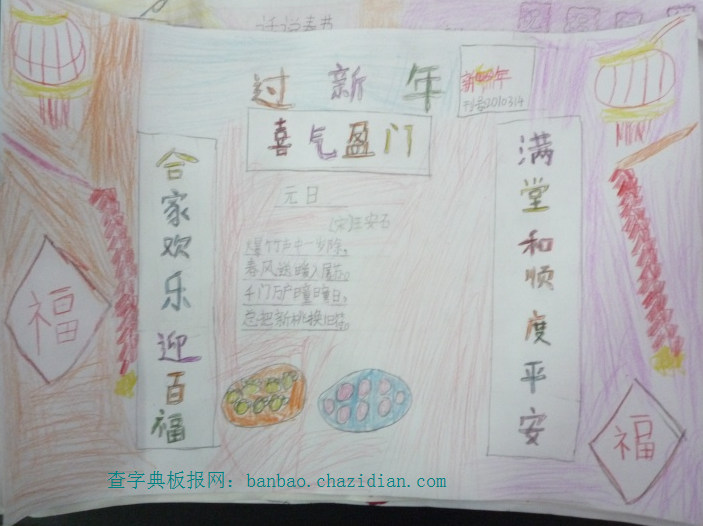 话说春节
过新年
新年
刊号2010314
喜气盈门
合家欢乐迎百福
满堂和顺度平安
元日
(宋)王安石
爆竹声中一岁除。
春风送暖入屠苏。
千门万户曈曈日。
总把新桃换旧符。
福
福
查字典板报网：banbao.chazidian.com